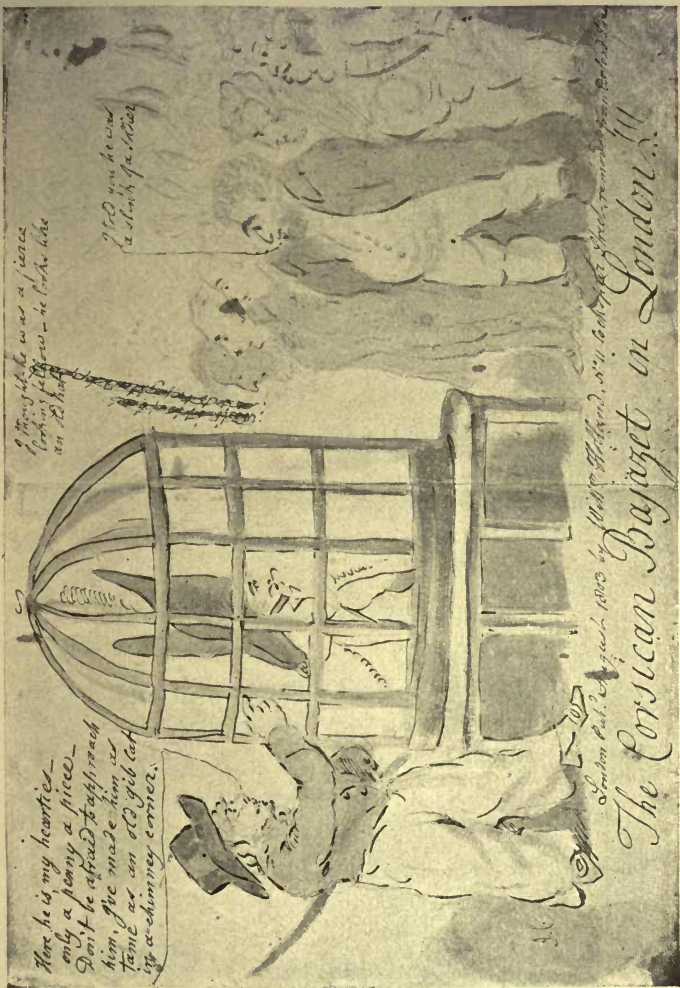 Here he is my hearties –
only a penny a piece –
Don't be afraid to approach
him. I've made him as
tame as an old gib Cat
in a chimney corner.
I thought he was a fierce
looking fellow – he looks like
an
I told you he was
a
London Pub.d August 1803 by Will.m Holland, N.o 11 Cockspur Street, removed from Oxford Str
The Corsican Bajazet in London!!!